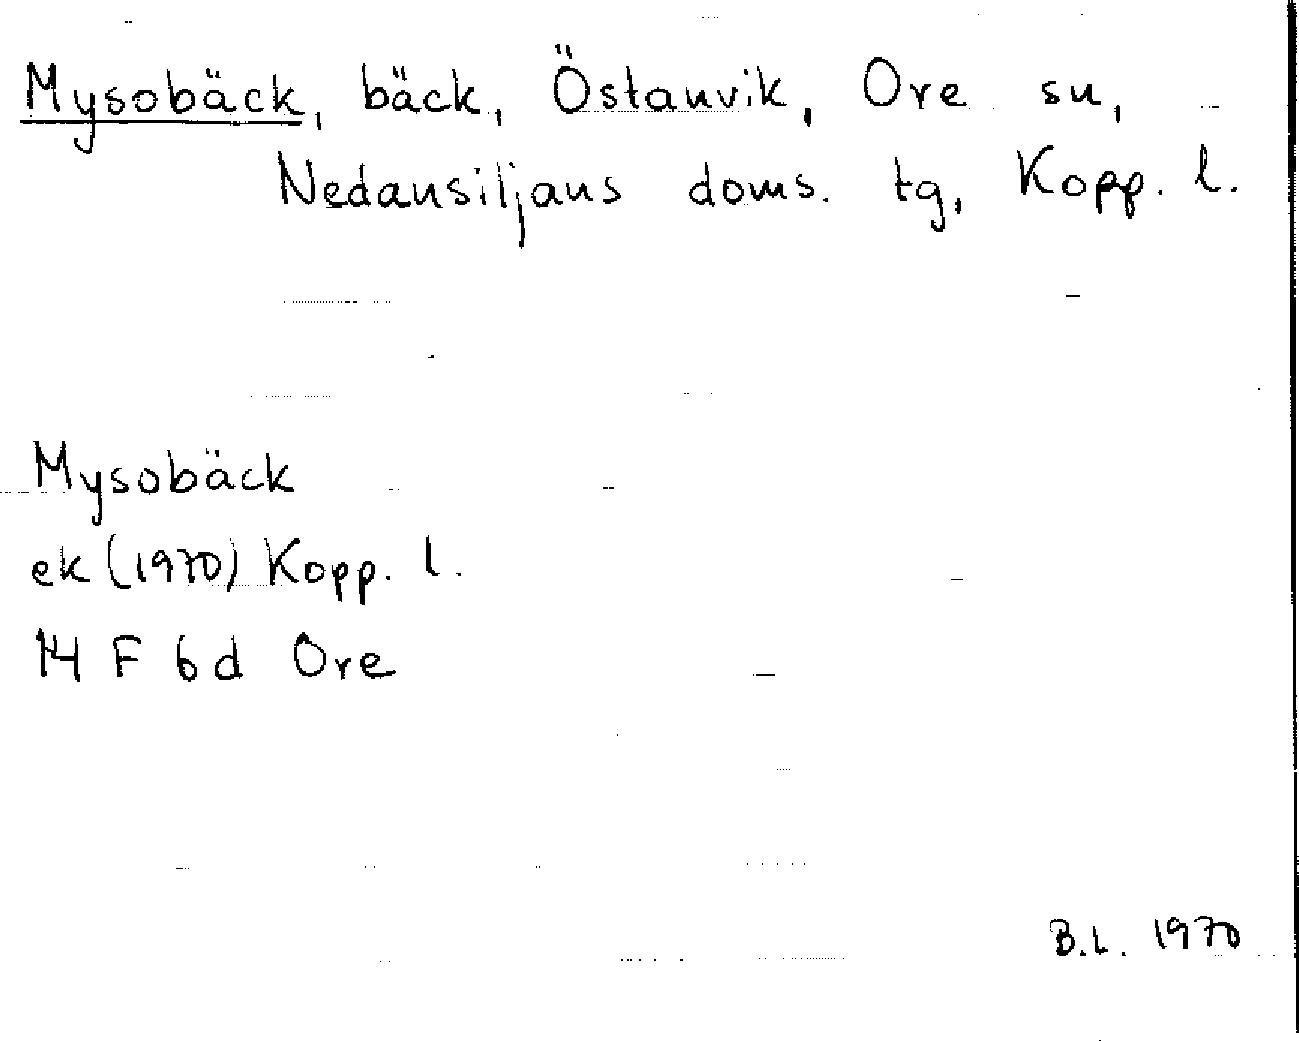 Mysobäck, bäck, Östanvik, Ore sn,
Nedansiljans doms. tg, Kopp. l.
Mysobäck
ek (1970) Kopp. l.
14 F 6d Ore
B.L. 1970